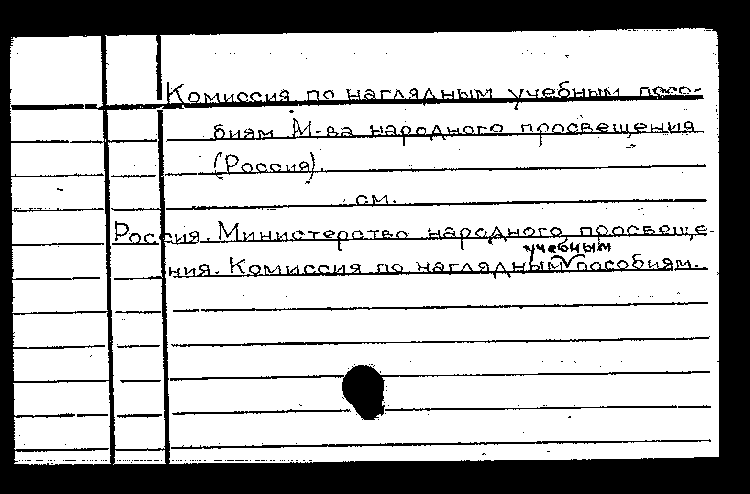 Комиссия по наглядным учебным посо-
биям М-ва народного просвещения
(Россия).
см.
Россия. Министерство народного просвеще-
учебным
ния. Комиссия по наглядным пособиям.